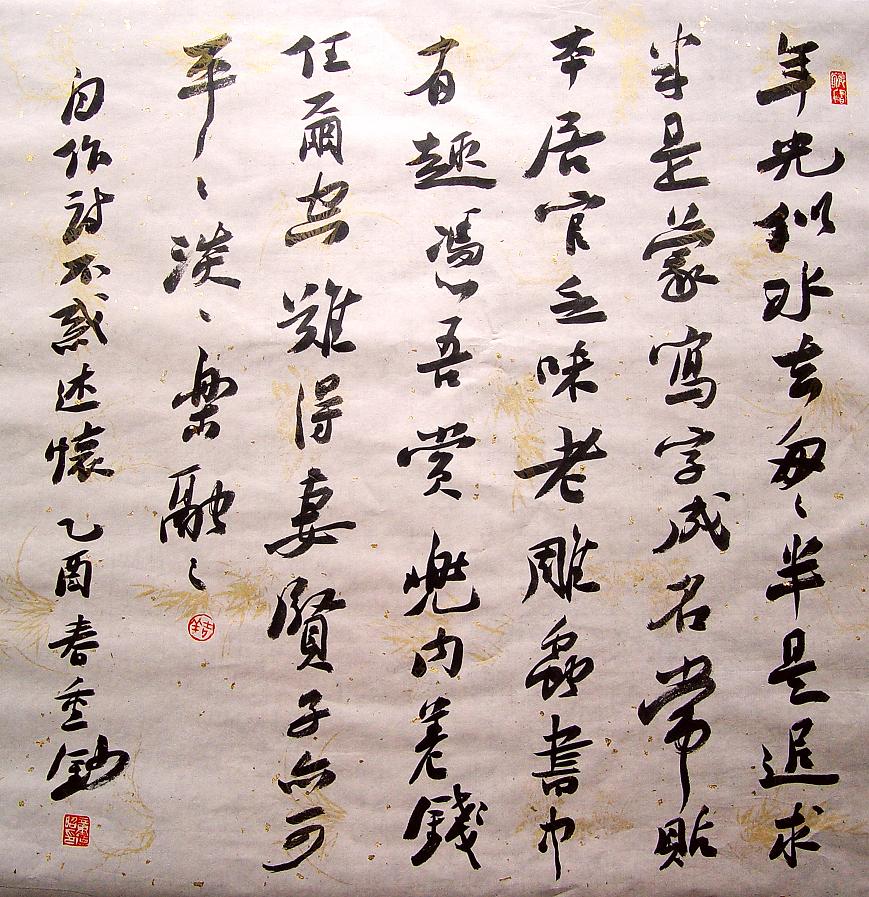 年光似水去匆々半是追求
半是蒙寫字成名常貼
本居官乏味老雕蟲書中
有趣憑吾賞兜内差錢
任爾空難得妻賢子亦可
平々淡々樂融々
自作詩不惑述懷乙酉春重鈔